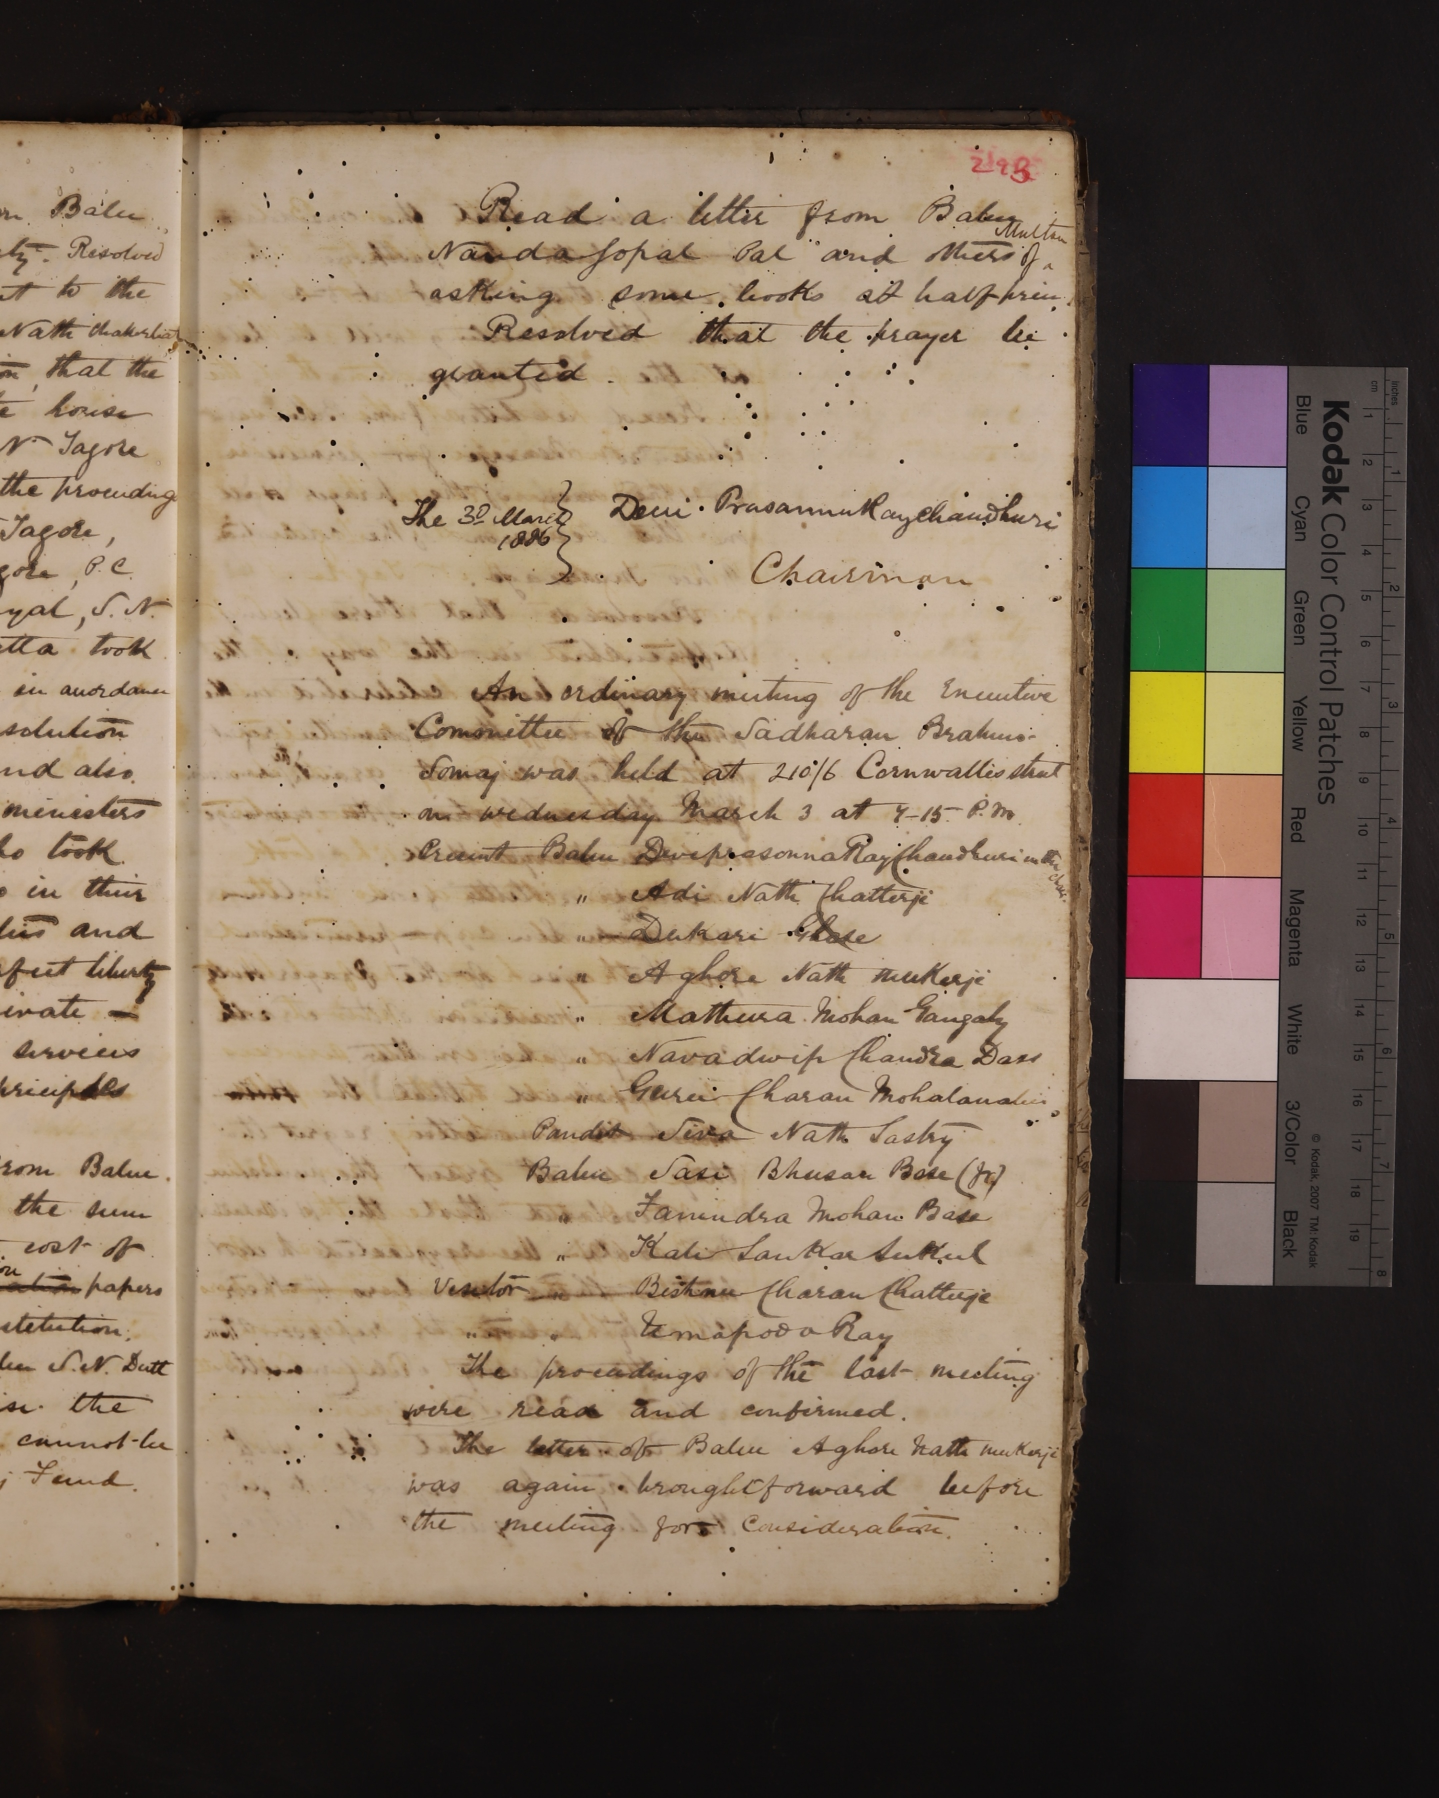 n Babu
ty. Resolved
nt to the
Nath Chakerbati
on, that the
e house
N. Tagore
the proceeding
Tagore,
gore, P.C.
yal, S. N.
tta took
in accordance
solution
nd also
ministers
ho took
o in their
lies and
rfect liberty
ivate —
services
pricipals
rom Babu
the sum
cost of
papers
stitution.
bu S. N. Dutt
the
cannot be
j Fund.
293
Read a letter from Babu
Nanda Gopal Pal and others of Multan
asking some books at half price.
Resolved that the prayer be
granted.
The 3d March
1886
Devi Prasanna Raychaudhuri
Chairman
An ordinary meeting of the Executive
Committee of the Sadharan Brahmo
Somaj was held at 210/6 Cornwallis street
on wednesday March 3 at 7-15 P.M.
Present Babu Deviprasonna Ray Chaudhuri in the chair.
" Adi Nath Chatterji
" Dukari Ghose
" Aghore Nath Mukerji
" Mathura Mohan Gangaly
" Navadwip Chandra Dass
" Guru Charan Mohalanabis
Pandit Siva Nath Sastry
Babu Sasi Bhusan Bose (Jr)
" Fanindra Mohan Bose
" Kali Sankar Sukul
Visitor Bishnu Charan Chatterje
" " Umapodo Ray
The proceedings of the last meeting
were read and confirmed.
The letter of Babu Aghore Nath Mukerje
was again brought forward before
the meeting for consideration.
Kodak Color Control Patches
Blue Cyan Green Yellow Red Magenta White 3/Color Black
© Kodak, 2007 TM: Kodak
cm 1 2 3 4 5 6 7 8 9 10 11 12 13 14 15 16 17 18 19
inches 1 2 3 4 5 6 7 8